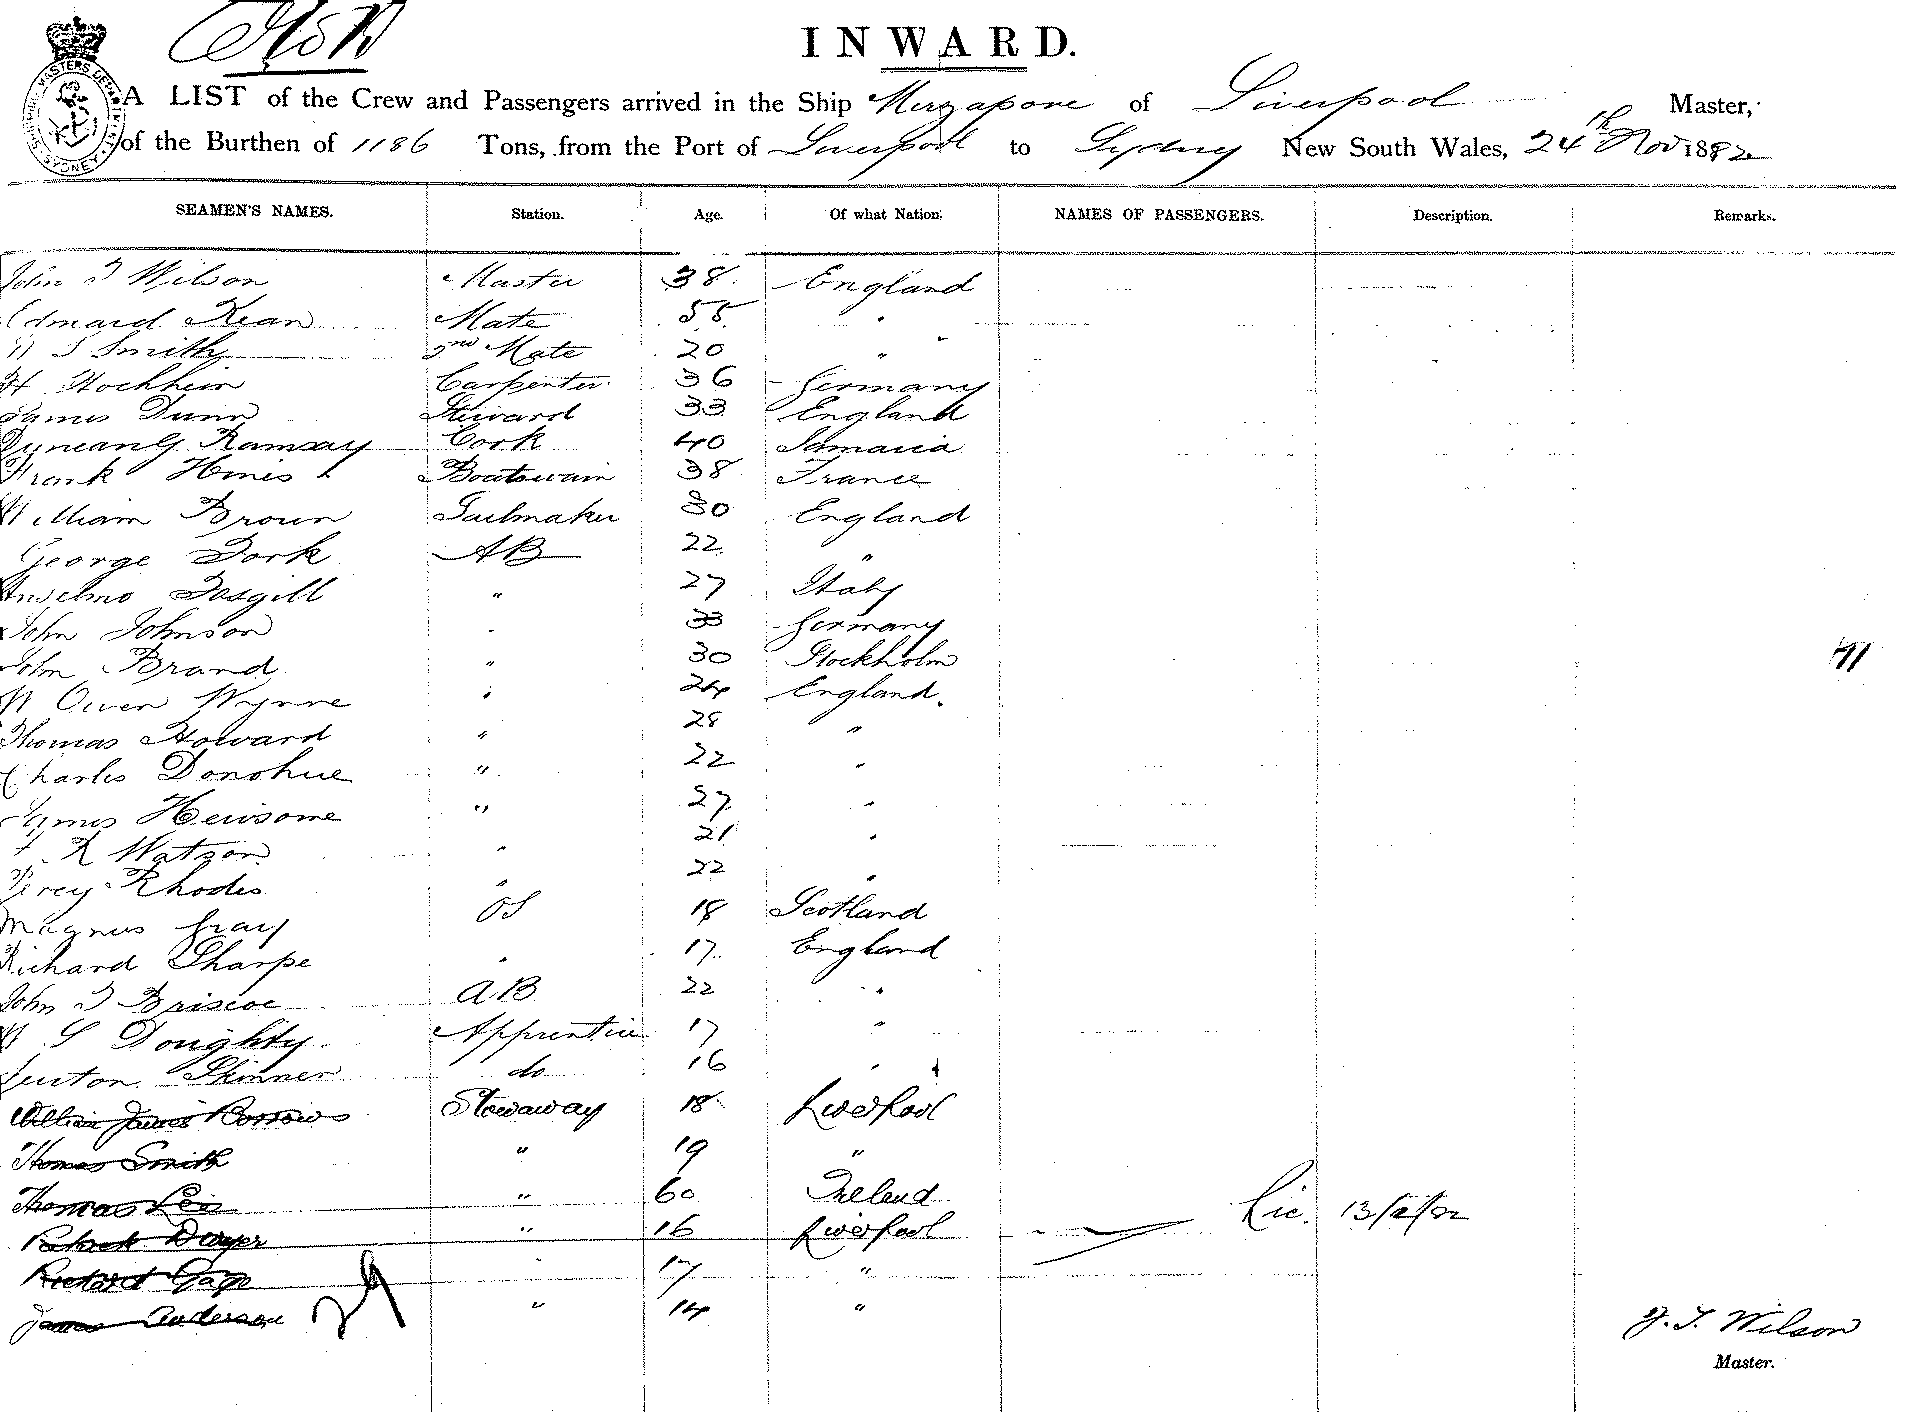 INWARD.
A LIST of the Crew and Passengers arrived in the Ship Mirzapore of Liverpool Master,
of the Burthen of 1186 Tons, from the Port of Liverpool to Sydney New South Wales, 24th Nov 1882
SEAMEN'S NAMES. Station. Age. Of what Nation. NAMES OF PASSENGERS. Description. Remarks.
John T Wilson Master 38 England
Edward Kean Mate 55 "
W S Smith 2nd Mate 20 "
H Hochheim Carpenter 36 Germany
James Dunn Steward 33 England
Ramsay Cook 40 Jamaica
Frank Boatswain 38 France
William Brown Sailmaker 30 England
George York AB 22 "
Anselmo " 27 Italy
John Johnson " 33 Germany
John Brand " 30 Stockholm
W Owen Wynne " 24 England
Thomas Howard " 28 "
Charles Donohue " 22 "
James Hewsome " 27 "
R Watson " 21 "
Percy Rhodes " 22 "
Magnus Gray OS 18 Scotland
Richard Sharpe " 17 England
John T Briscoe AB 22 "
W S Doughty Apprentice 17 "
Skinner do 16 "
William James Borrows Stowaway 18 Liverpool
Thomas Smith " 19 "
Thomas " 60 Ireland
Patrick Dwyer " 16 Liverpool Lic.
Richard Gage " 17 "
James Anderson 29 " 14 "
J. T. Wilson
Master.